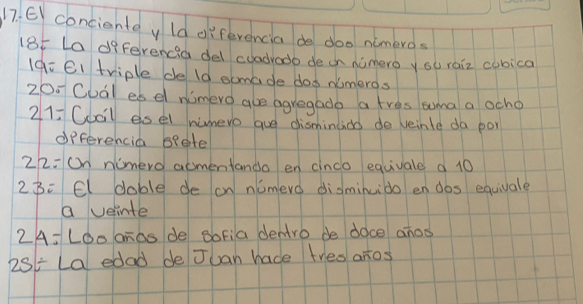 17. El conciente y la diferencia de doo números
18= La diferencia del cuadrado de un número y su raíz cubica
19= El triple de la suma de dos números
20= Cuál es el número que agregado a tres suma a ocho
21= Cuál es el número que disminuido de veinte da por
diferencia siete
22= Un número aumentando en cinco equivale a 10
23= El doble de un número disminuido en dos equivale
a veinte
24= Los años de sofia dentro de doce años
25= La edad de Juan hace tres años